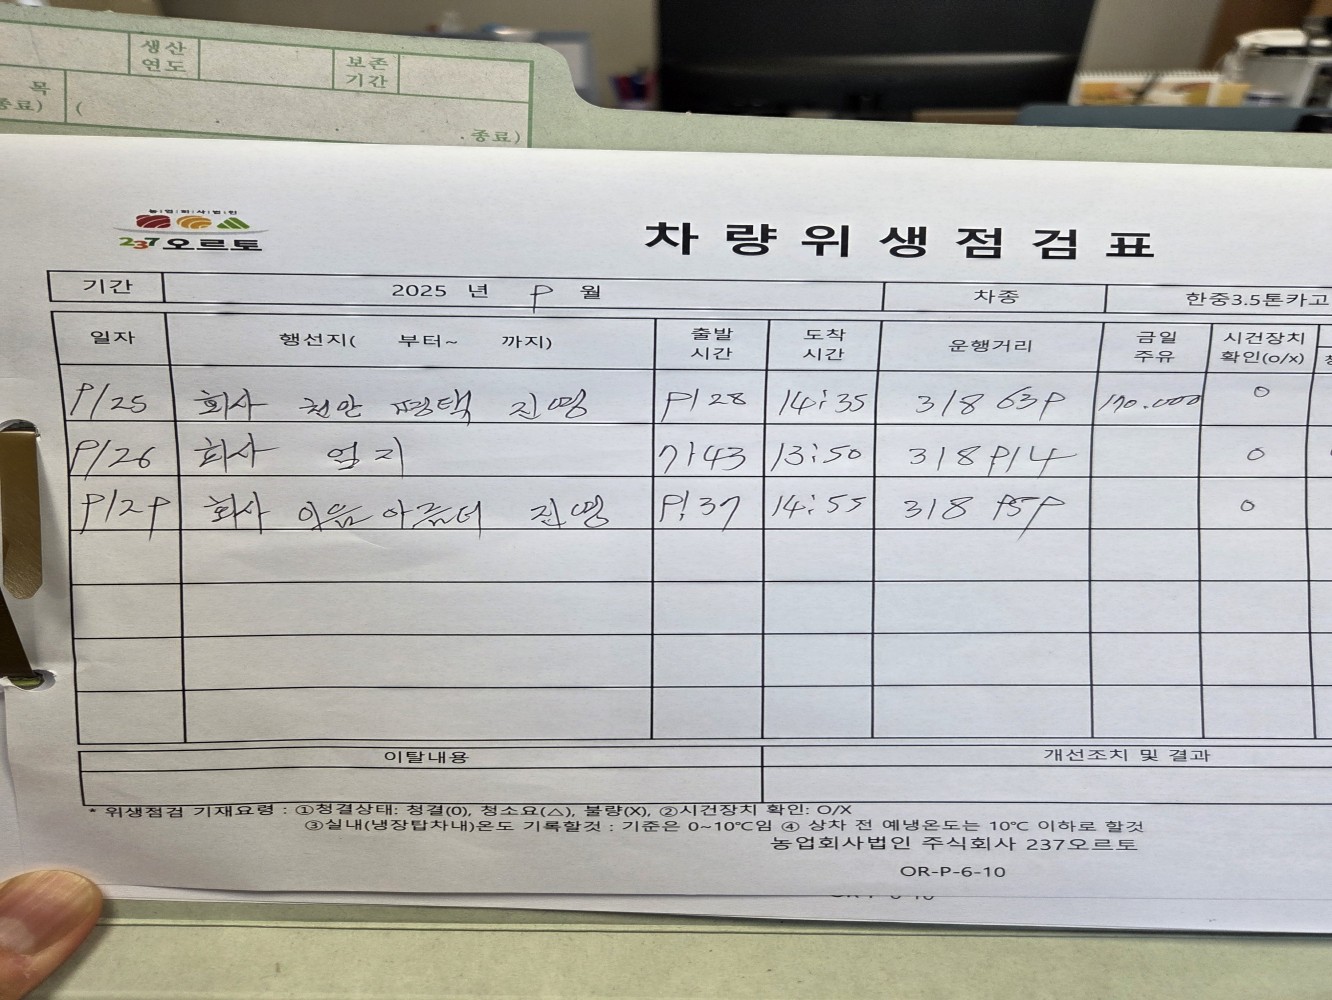 생산
연도
보존
기간
목
종료)
(
. 종료)
농업회사법인
237오르토
차량위생점검표
기간 2025 년 9 월 차종 한중3.5톤카고
일자 행선지( 부터~ 까지) 출발 시간 도착 시간 운행거리 금일 주유 시건장치 확인(o/x)
9/25 회사 천안 평택 진영 9:28 14:35 318 639 170.000 o
9/26 회사 엄지 7:43 13:50 318 914 o
9/29 회사 이음 아름터 진영 9:37 14:55 318 959 o
이탈내용 개선조치 및 결과
* 위생점검 기재요령 : ①청결상태: 청결(0), 청소요(△), 불량(X), ②시건장치 확인: O/X
③실내(냉장탑차내)온도 기록할것 : 기준은 0~10℃임 ④ 상차 전 예냉온도는 10℃ 이하로 할것
농업회사법인 주식회사 237오르토
OR-P-6-10